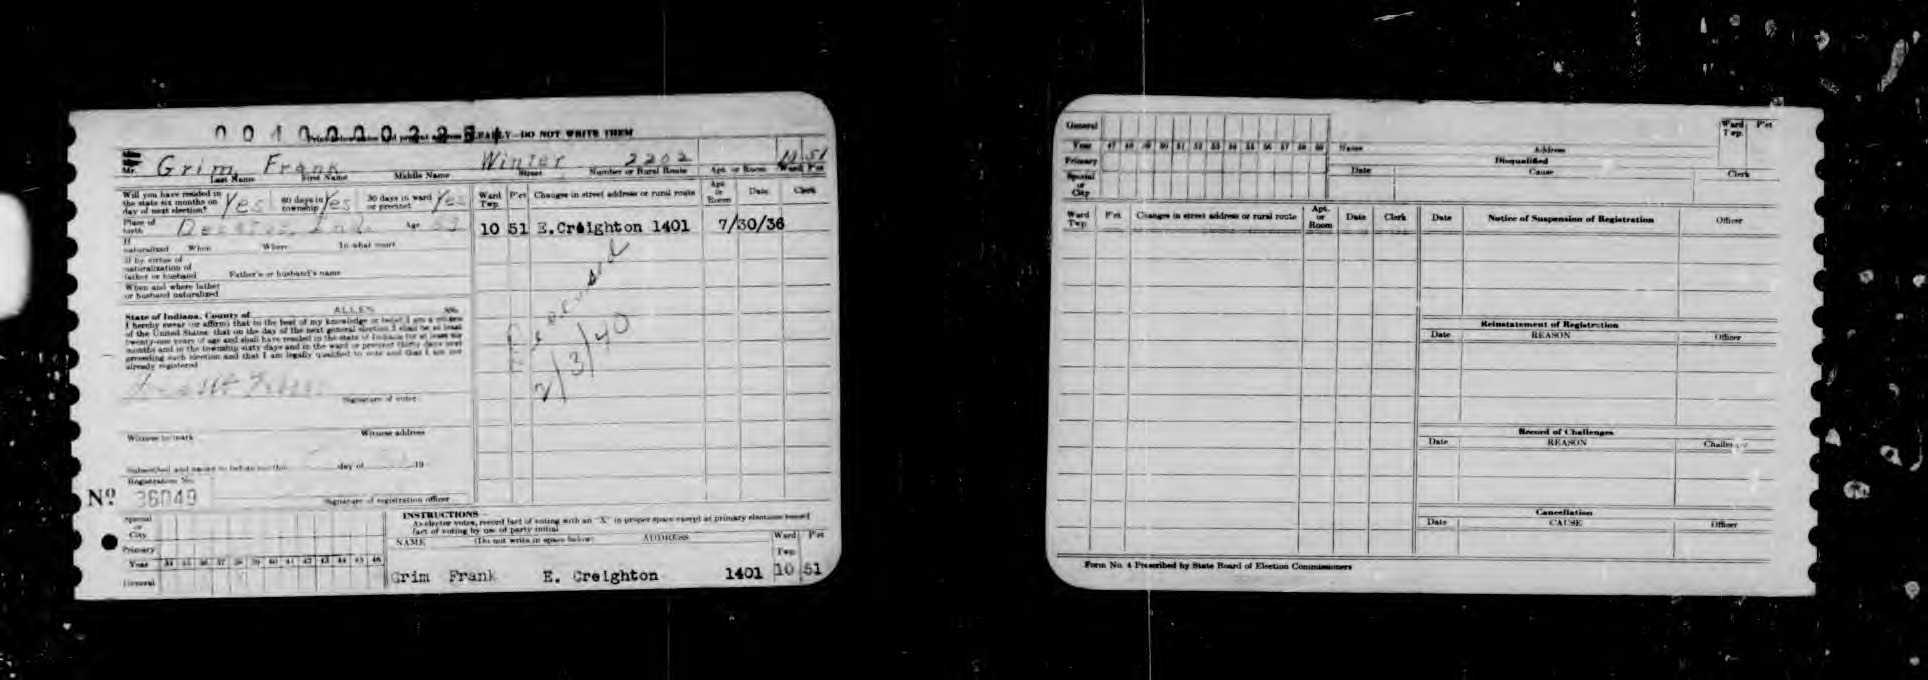 DO NOT WRITE THEM
Mr. Grim Frank Winter 2202 10 51
Last Name First Name Middle Name Street Number or Rural Route Apt. or Room Ward Pct
Will you have resided in the state six months on day of next election? Yes 60 days in township Yes 30 days in ward or precinct Yes
Ward Twp. Pct Changes in street address or rural route Apt. or Room Date Clerk
Place of birth Decatur Ind. Age
10 51 E.Creighton 1401 7/30/36
If naturalized When Where In what court
If by virtue of naturalization of father or husband Father's or husband's name
When and where father or husband naturalized
State of Indiana, County of ALLEN SS.
I hereby swear (or affirm) that to the best of my knowledge or belief I am a citizen
of the United States, that on the day of the next general election I shall be at least
twenty-one years of age and shall have resided in the state of Indiana for at least six
months and in the township sixty days and in the ward or precinct thirty days next
preceding such election and that I am legally qualified to vote and that I am not
already registered
2/3/40
Signature of voter
Witness to mark Witness address
Subscribed and sworn to before me this day of 19
Registration No.
No. 36049
Signature of registration officer
INSTRUCTIONS
As elector votes, record fact of voting with an "X" in proper space except at primary elections record
fact of voting by use of party initial
Special or City
Primary
Year 34 35 36 37 38 39 40 41 42 43 44 45 46
General
NAME (Do not write in space below) ADDRESS Ward Twp. Pct
Grim Frank E. Creighton 1401 10 51
General
Year 47 48 49 50 51 52 53 54 55 56 57 58 59
Primary
Special or City
Name Address Ward Twp. Pct
Disqualified
Date Cause Clerk
Ward Twp. Pct Changes in street address or rural route Apt. or Room Date Clerk
Date Notice of Suspension of Registration Officer
Reinstatement of Registration
Date REASON Officer
Record of Challenges
Date REASON Challenger
Cancellation
Date CAUSE Officer
Form No. 4 Prescribed by State Board of Election Commissioners